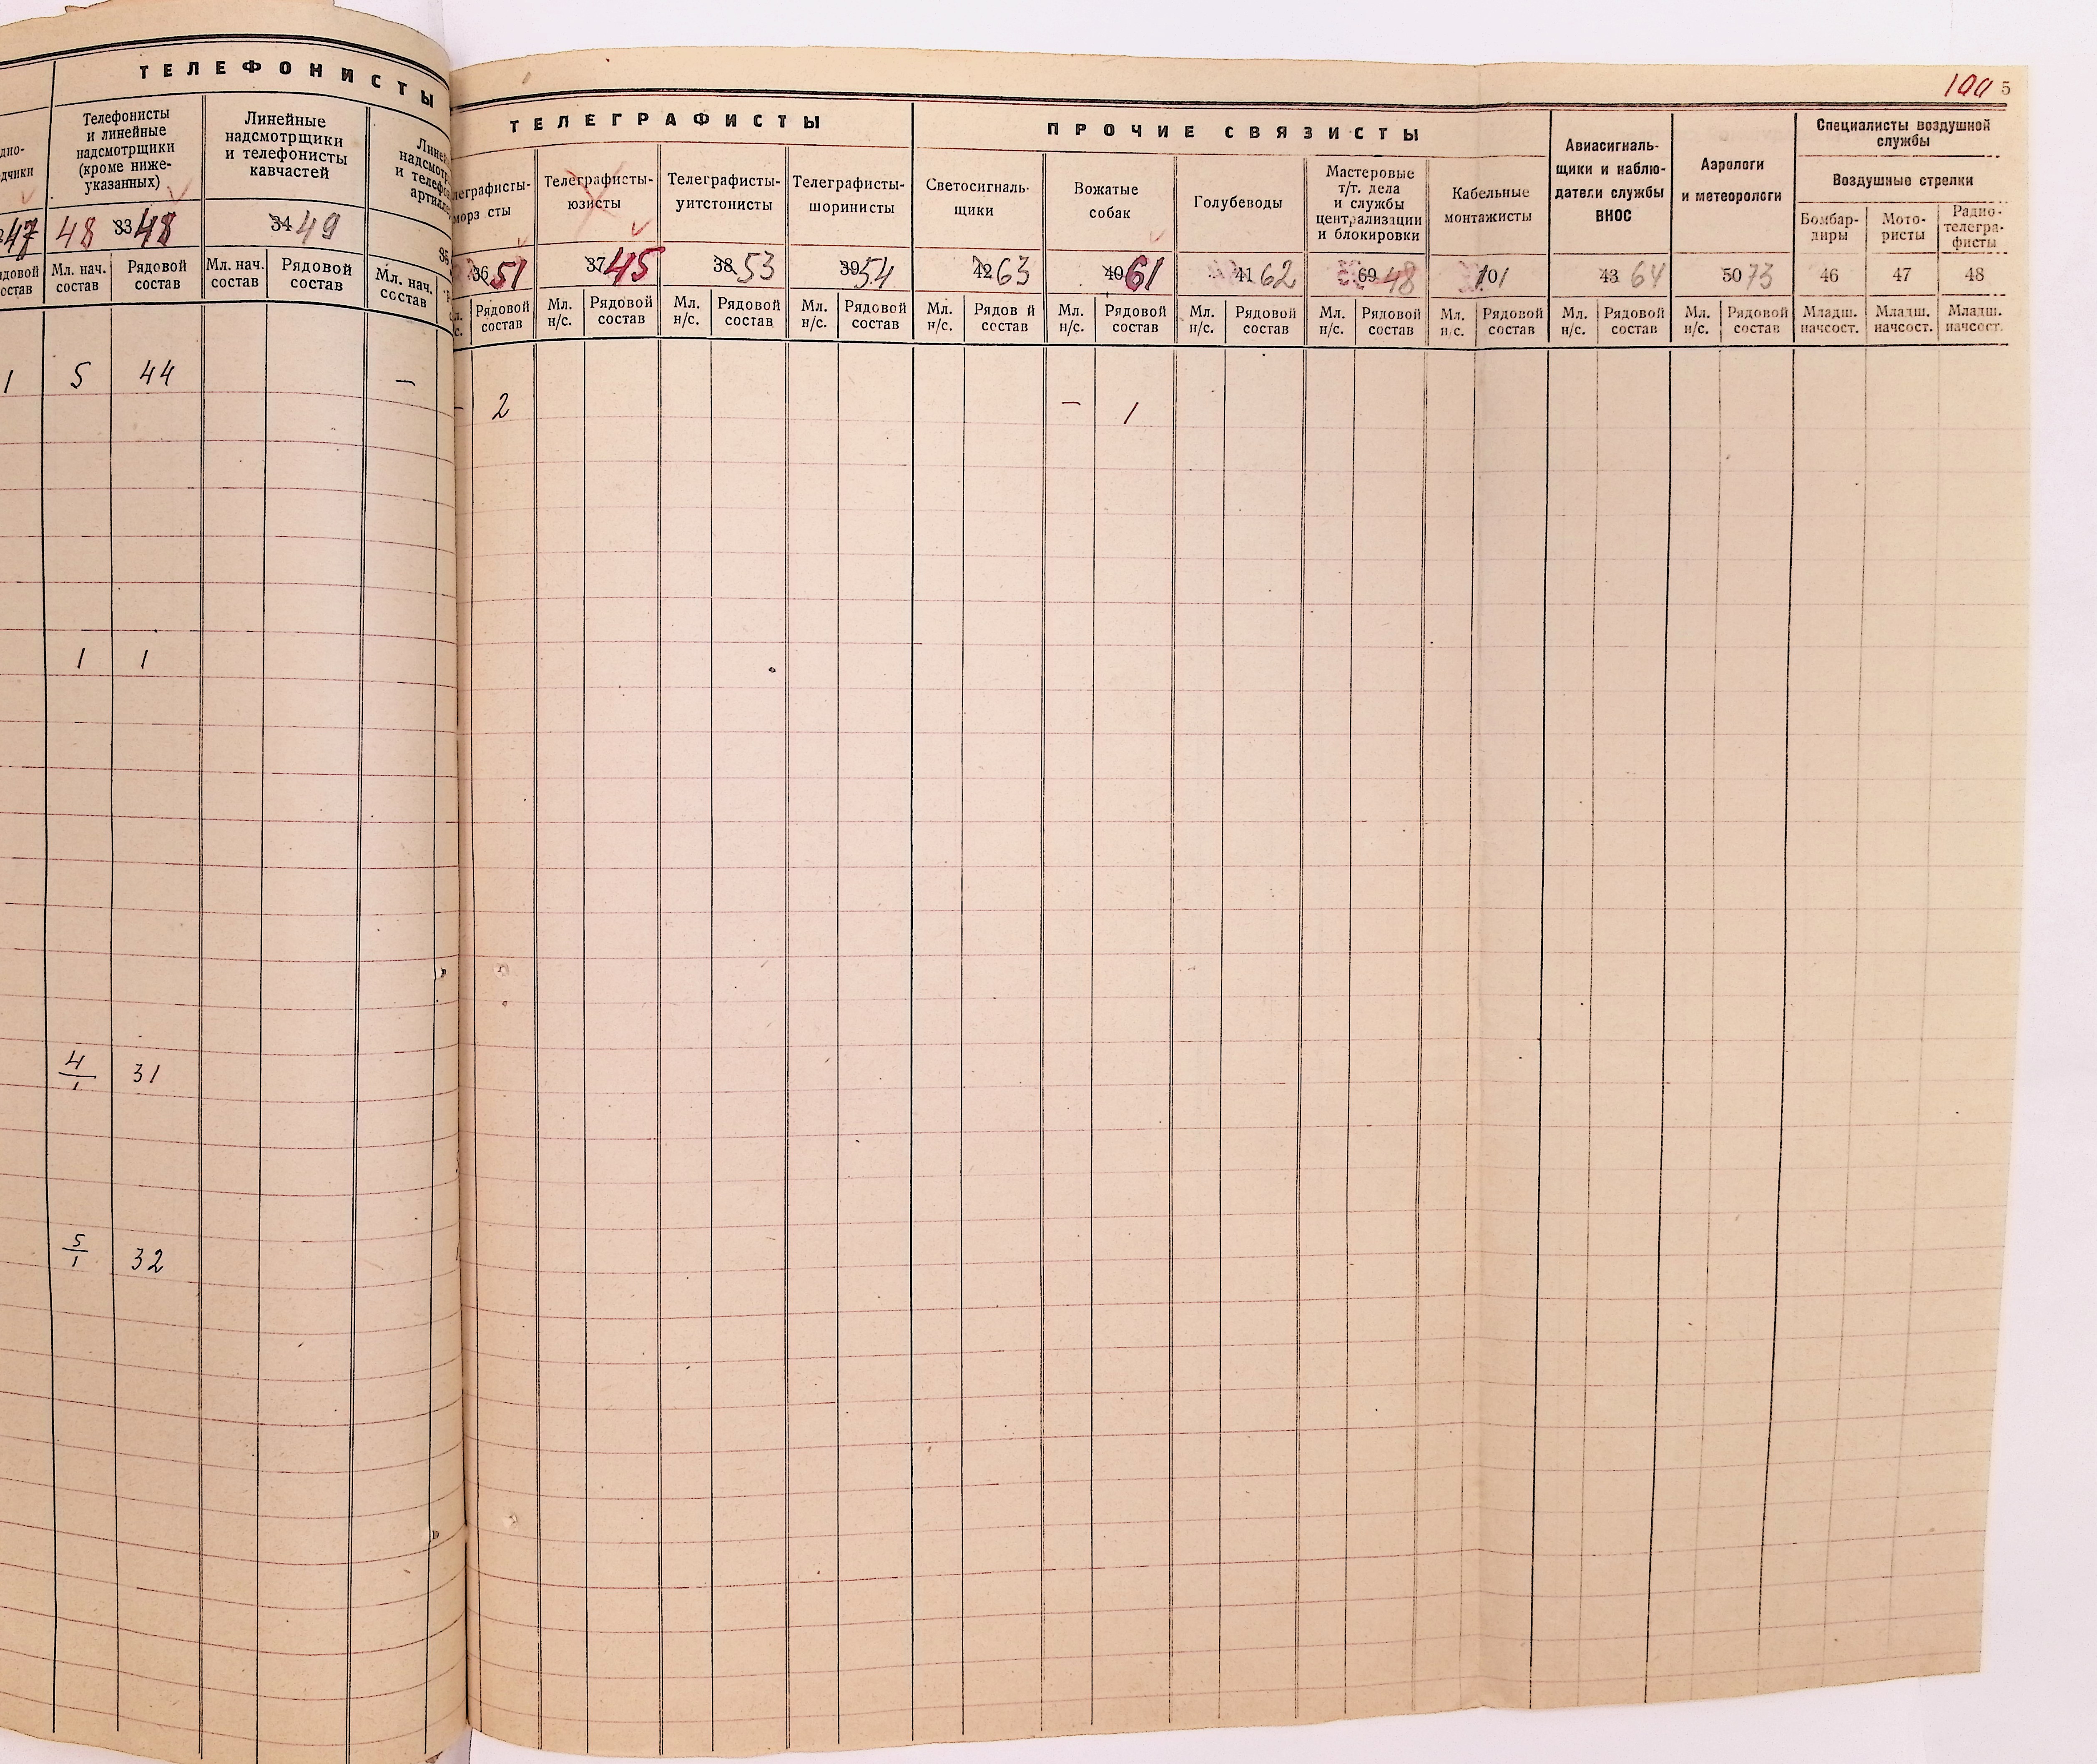 ТЕЛЕФОНИСТЫ
дчики
Телефонисты
и линейные
надсмотрщики
(кроме ниже-
указанных)
Линейные
надсмотрщики
и телефонисты
кавчастей
47 48 33 48 34 49
Мл. нач.
состав
Рядовой
состав
Мл. нач.
состав
Рядовой
состав
Мл. нач.
состав
1 5 44 —
1 1
4/1 31
5/1 32
100 5
ТЕЛЕГРАФИСТЫ
ПРОЧИЕ СВЯЗИСТЫ
Авиасигналь-
щики и наблю-
датели службы
ВНОС
Аэрологи
и метеорологи
Специалисты воздушной
службы
Воздушные стрелки
Телеграфисты-
юзисты
Телеграфисты-
уитстонисты
Телеграфисты-
шоринисты
Светосигналь-
щики
Вожатые
собак
Голубеводы
Мастеровые
т/т. дела
и службы
централизации
и блокировки
Кабельные
монтажисты
Бомбар-
диры
Мото-
ристы
Радио-
телегра-
фисты
36 51 37 45 38 53 39 54 42 63 40 61 41 62 69 48 101 43 64 50 73 46 47 48
Рядовой
состав
Мл.
н/с.
Рядовой
состав
Мл.
н/с.
Рядовой
состав
Мл.
н/с.
Рядовой
состав
Мл.
н/с.
Рядов й
состав
Мл.
н/с.
Рядовой
состав
Мл.
н/с.
Рядовой
состав
Мл.
н/с.
Рядовой
состав
Мл.
н/с.
Рядовой
состав
Мл.
н/с.
Рядовой
состав
Мл.
н/с.
Рядовой
состав
Младш.
начсост.
Младш.
начсост.
Младш.
начсост.
— 2 — 1